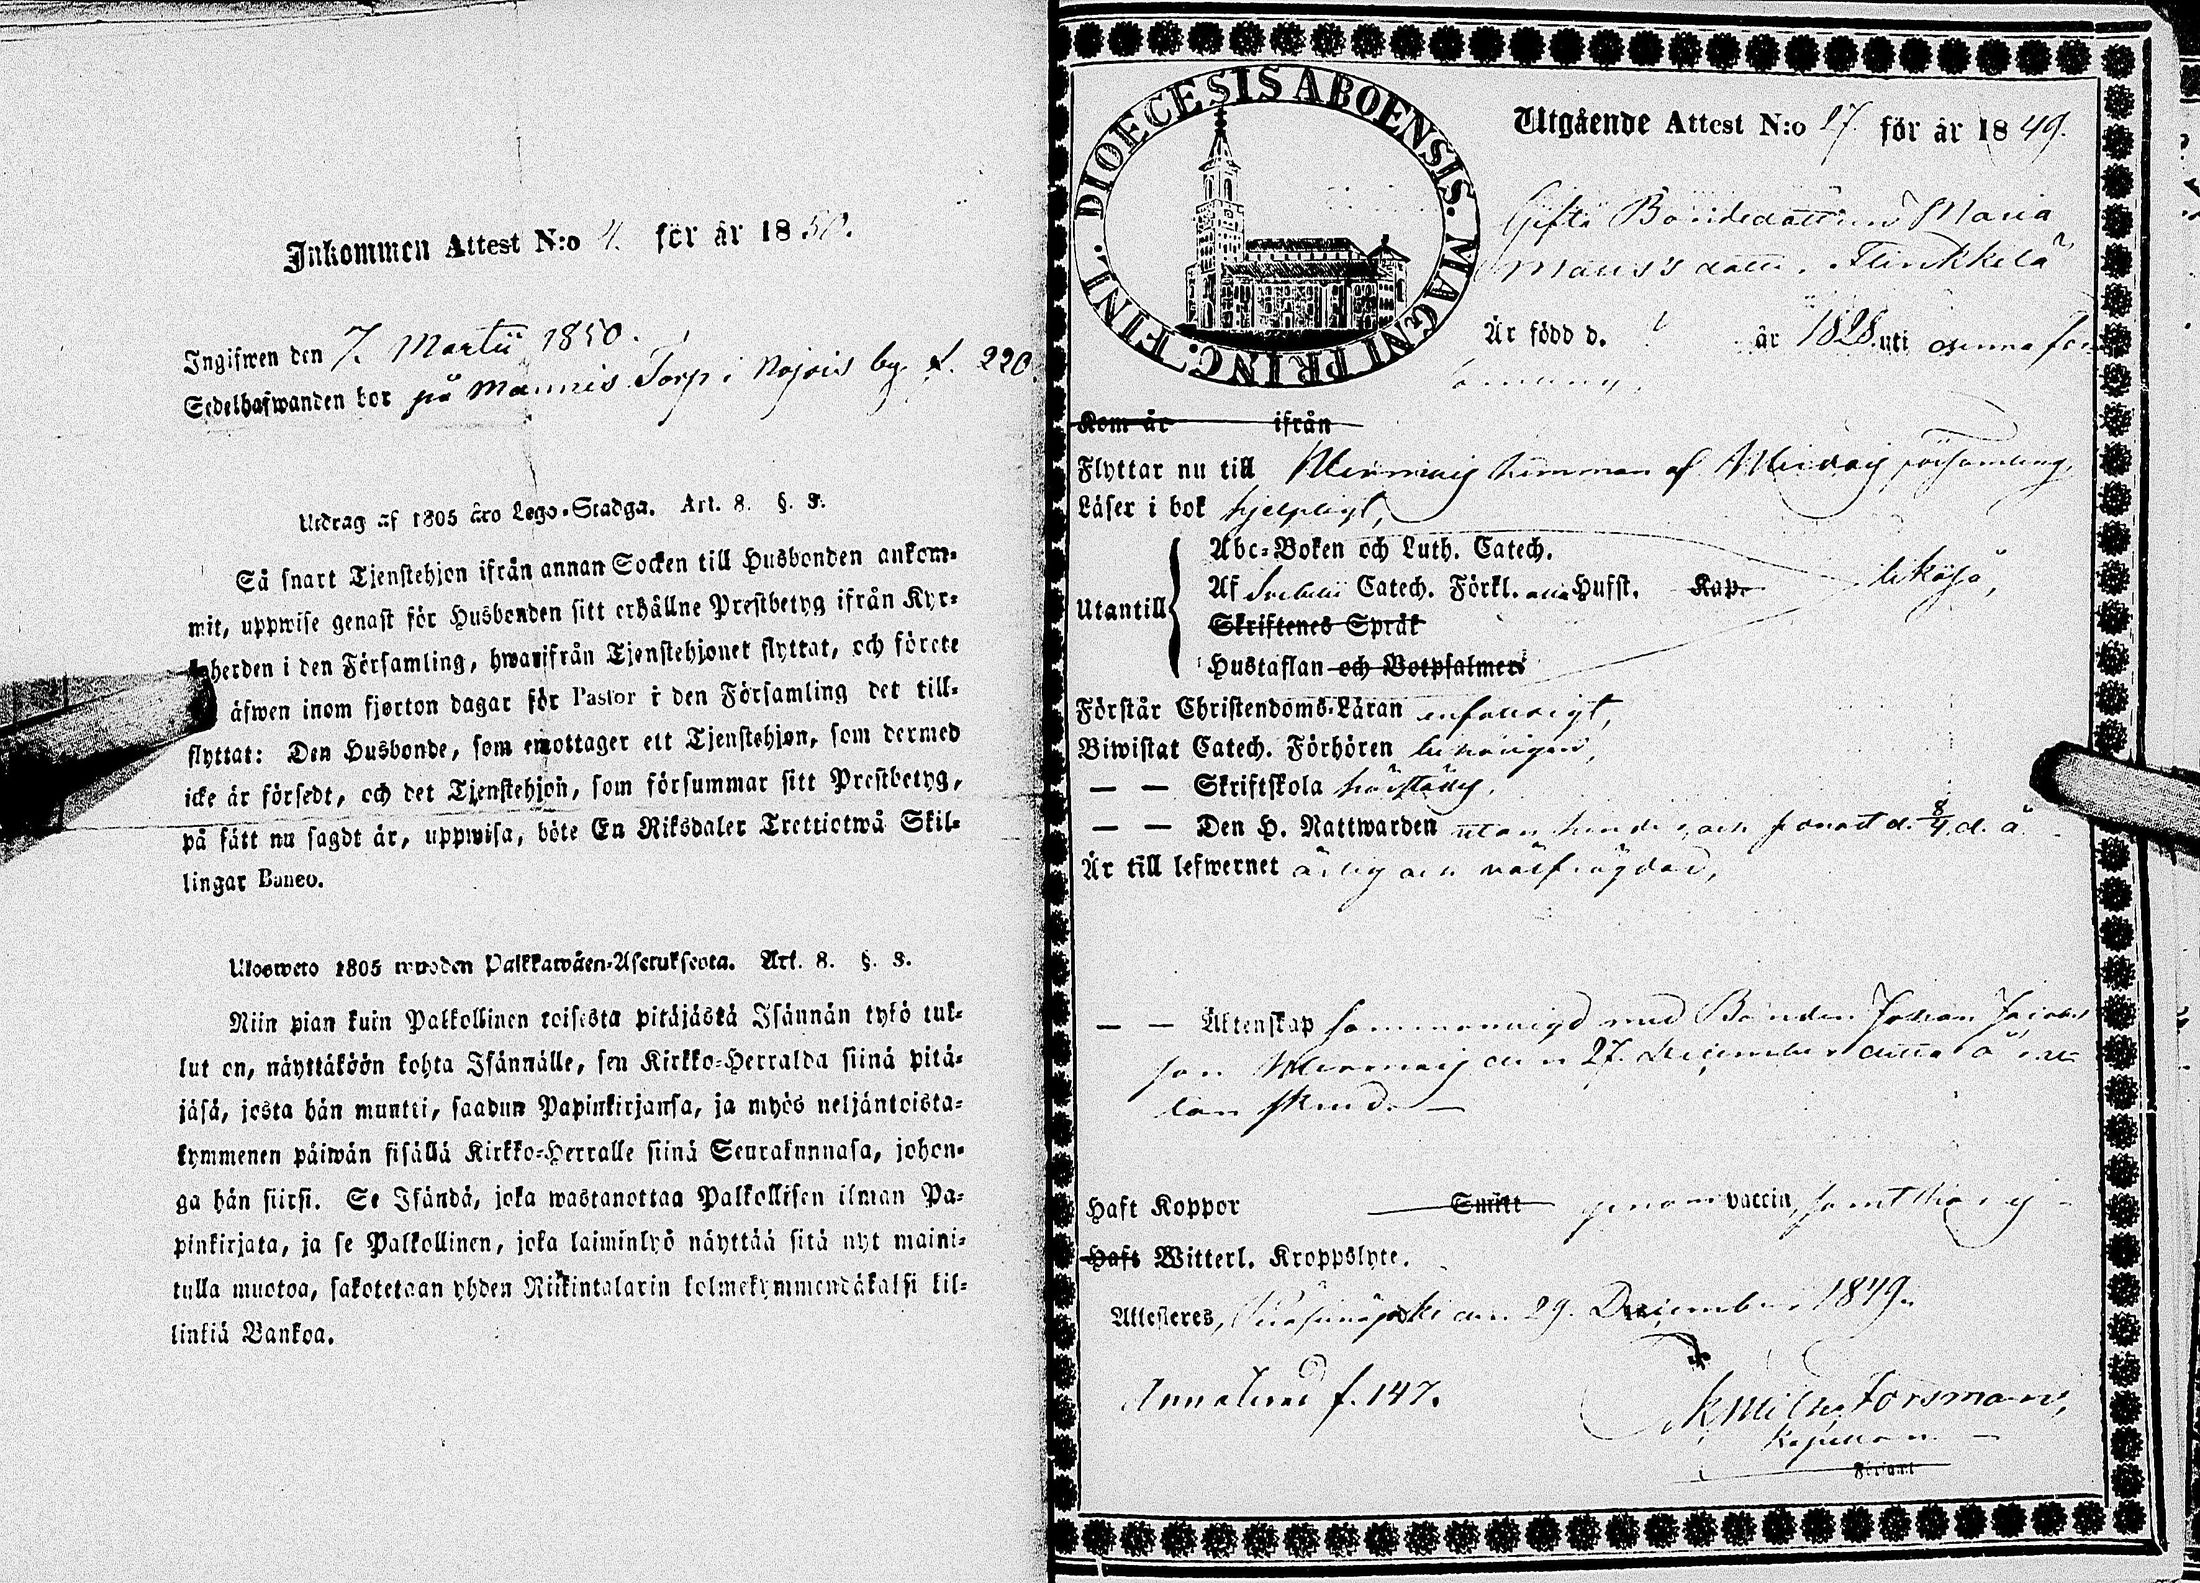 Inkommen Attest N:o 4. för år 1850.
Ingifwen den 7. Martii 1850.
Sedelhafwanden bor på Mannis Torp i Nojois by f. 220.
Utdrag af 1805 års Lego-Stadga. Art. 8. §. 3.
Så snart Tjenstehjon ifrån annan Socken till Husbonden ankom-
mit, uppwise genast för Husbonden sitt erhållne Prestbetyg ifrån Kyr-
herden i den Församling, hwarifrån Tjenstehjonet flyttat, och förete
äfwen inom fjorton dagar för Pastor i den Församling det till-
flyttat: Den Husbonde, som emottager ett Tjenstehjon, som dermed
icke är försedt, och det Tjenstehjon, som försummar sitt Prestbetyg,
på sätt nu sagdt är, uppwisa, böte En Riksdaler Trettiotwå Skil-
lingar Banco.
Ulosweto 1805 wuoden Palkkawäen-Asetuksesta. Art. 8. §. 3.
Niin pian kuin Palkollinen toisesta pitäjästä Isännän tykö tul-
lut on, näyttäköön kohta Isännälle, sen Kirkko-Herralda siinä pitä-
jäsä, josta hän muutti, saadun Papinkirjansa, ja myös neljäntoista-
kymmenen päiwän sisällä Kirkko-Herralle siinä Seurakunnasa, johon-
ga hän siirsi. Se Isändä, joka wastanottaa Palkollisen ilman Pa-
pinkirjata, ja se Palkollinen, joka laiminlyö näyttää sitä nyt maini-
tulla muotoa, sakotetaan yhden Riikintalarin kolmekymmendäkaksi kil-
linkiä Bankoa.
DIOECESIS ABOENSIS. MAGNI PRINC. FINL.
Utgående Attest N:o 27. för år 1849.
Gifta Bondedottren Maria
Mattsdotter Flinkkelä
Är född d. år 1828 uti denna för-
samling,
Kom år ifrån
Flyttar nu till hemman af församling,
Läser i bok hjelpligt,
Utantill
Abc-Boken och Luth. Catech.
Af Svebelii Catech. Förkl. Hufst. Kap. likaså,
Skriftenes Språk
Hustaflan och Botpsalmer
Förstår Christendoms-Läran enfaldigt,
Biwistat Catech. Förhören behörigen,
— — Skriftskola härstädes,
— — Den H. Nattwarden utan hinder, senast d. 8/4 d. å.
Är till lefwernet ärlig och välfrägdad,
— — Ältenskap sammanvigd med Bonden Johan Jacobs
son den 27. December detta år
Haft Koppor Smitt genom vaccin, samt
Haft Witterl. Kroppslyte.
Attesteres, Peräseinäjoki den 29. December 1849.
Annalund f. 147.
Forsman,
Kapellan
Förjamt